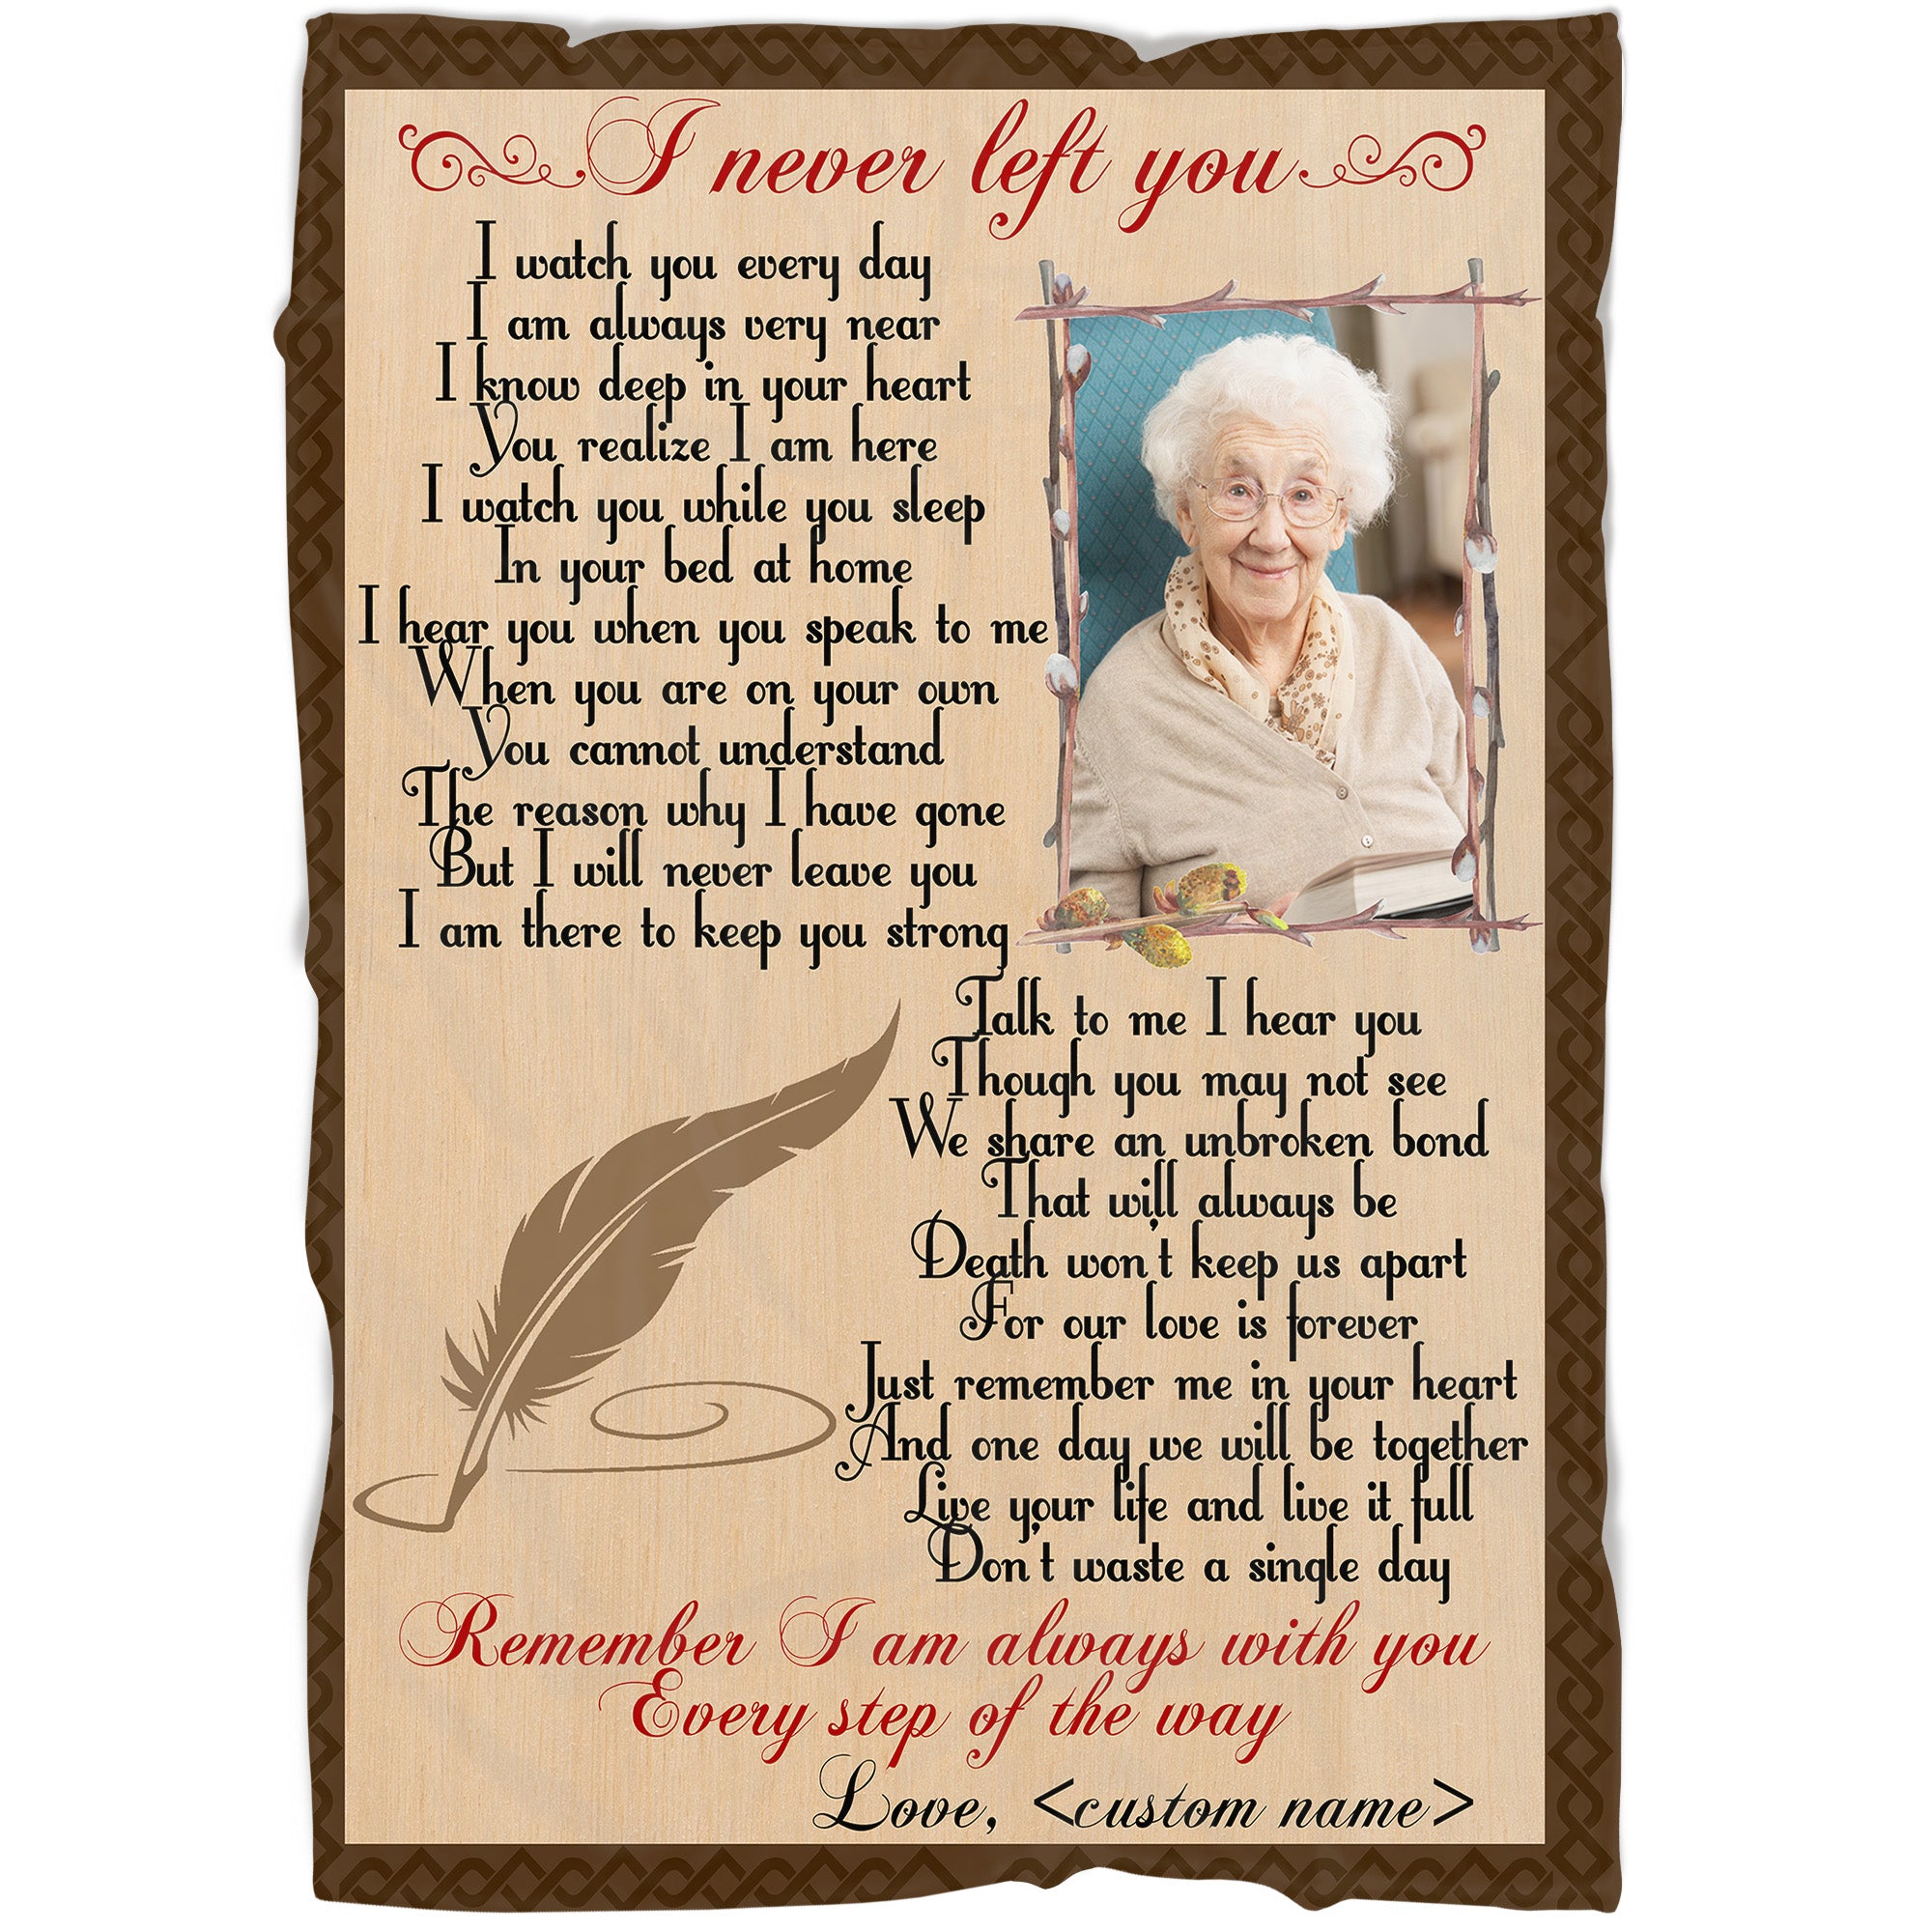 I never left you
I watch you every day
I am always very near
I know deep in your heart
You realize I am here
I watch you while you sleep
In your bed at home
I hear you when you speak to me
When you are on your own
You cannot understand
The reason why I have gone
But I will never leave you
I am there to keep you strong
Talk to me I hear you
Though you may not see
We share an unbroken bond
That will always be
Death won't keep us apart
For our love is forever
Just remember me in your heart
And one day we will be together
Live your life and live it full
Don't waste a single day
Remember I am always with you
Every step of the way
Love, <custom name>